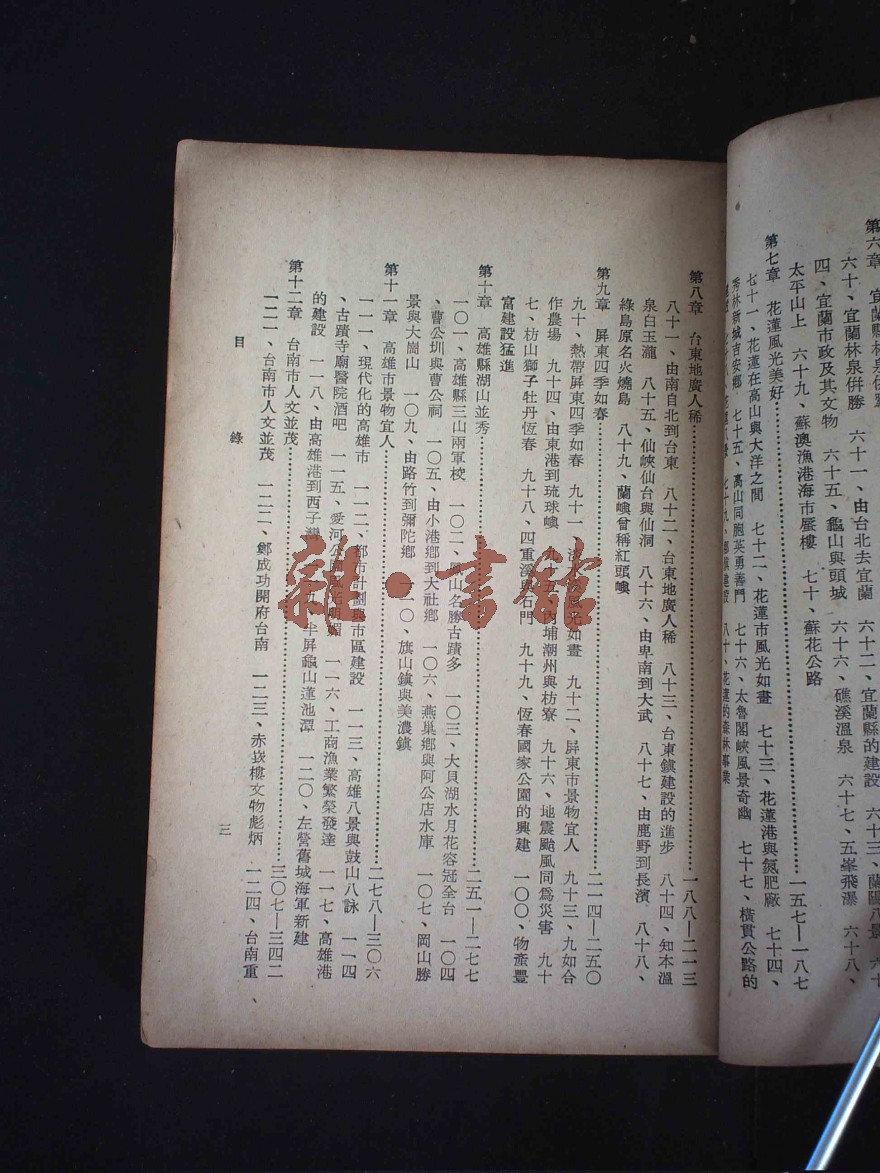 第六章　宜蘭林泉併
六十、宜蘭林泉併勝　六十一、由台北去宜蘭　六十二、宜蘭縣的建設　六十三、蘭陽八景　六十
四、宜蘭市政及其文物　六十五、龜山與頭城　六十六、礁溪溫泉　六十七、五峯飛瀑　六十八、
太平山上　六十九、蘇澳漁港海市蜃樓　七十、蘇花公路
第七章　花蓮風光美好……一五七—一八七
七十一、花蓮在高山與大洋之間　七十二、花蓮市風光如畫　七十三、花蓮港與氮肥廠　七十四、
秀林新城吉安鄉　七十五、高山同胞英勇善鬥　七十六、太魯閣峽風景奇幽　七十七、橫貫公路的
七十九、　八十、花蓮的森林事業
第八章　台東地廣人稀……一八八—二一三
八十一、由南自北到台東　八十二、台東地廣人稀　八十三、台東鎮建設的進步　八十四、知本溫
泉白玉瀧　八十五、仙峽仙台與仙洞　八十六、由卑南到大武　八十七、由鹿野到長濱　八十八、
綠島原名火燒島　八十九、蘭嶼曾稱紅頭嶼
第九章　屏東四季如春……二一四—二五〇
九十、熱帶屏東四季如春　九十一、風光如畫　九十二、屏東市景物宜人　九十三、九如合
作農場　九十四、由東港到琉球嶼　九十五、內埔潮州與枋寮　九十六、地震颱風同爲災害　九十
七、枋山獅子牡丹恆春　九十八、四重溪與石門　九十九、恆春國家公園的興建　一〇〇、物產豐
富建設猛進
第十章　高雄縣湖山並秀……二五一—二七七
一〇一、高雄縣三山兩軍校　一〇二、鳳山名勝古蹟多　一〇三、大貝湖水月花容冠全台　一〇四
、曹公圳與曹公祠　一〇五、由小港鄉到大社鄉　一〇六、燕巢鄉與阿公店水庫　一〇七、岡山勝
景與大崗山　一〇九、由路竹到彌陀鄉　一一〇、旗山鎮與美濃鎮
第十一章　高雄市景物宜人……二七八—三〇六
一一一、現代化的高雄市　一一二、都市計劃與市區建設　一一三、高雄八景與鼓山八詠　一一四
、古蹟寺廟醫院酒吧　一一五、愛河公園風光明媚　一一六、工商漁業繁榮發達　一一七、高雄港
的建設　一一八、由高雄港到西子灣　一一九、半屏龜山蓮池潭　一二〇、左營舊城海軍新建
第十二章　台南市人文並茂……三〇七—三四二
一二一、台南市人文並茂　一二二、鄭成功開府台南　一二三、赤崁樓文物彪炳　一二四、台南重
目　錄　三
雜・書館